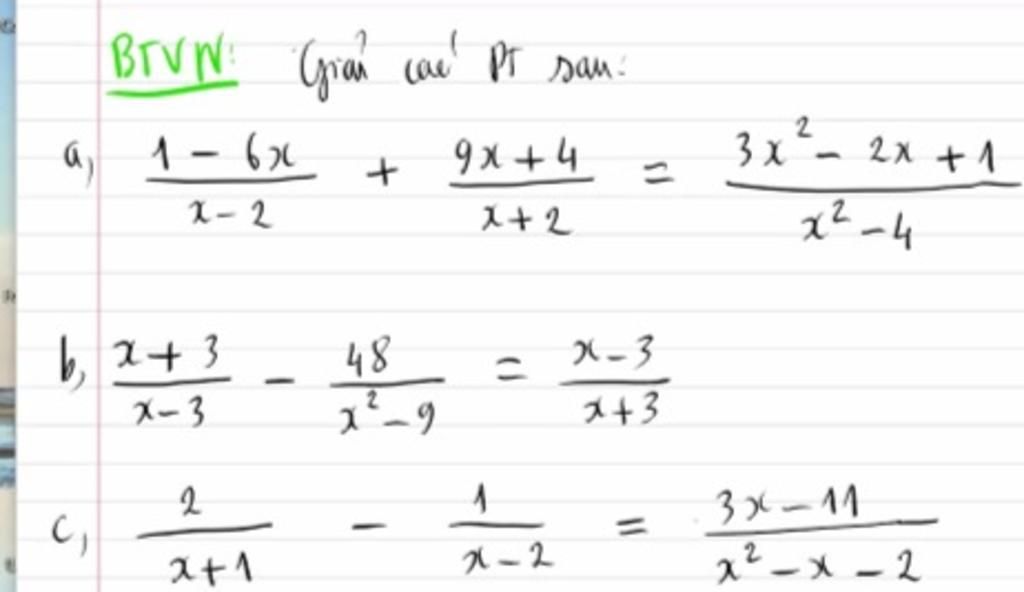 BTVN: Giải các PT sau:
a, (1 - 6x)/(x - 2) + (9x + 4)/(x + 2) = (3x² - 2x + 1)/(x² - 4)
b, (x + 3)/(x - 3) - 48/(x² - 9) = (x - 3)/(x + 3)
c, 2/(x + 1) - 1/(x - 2) = (3x - 11)/(x² - x - 2)